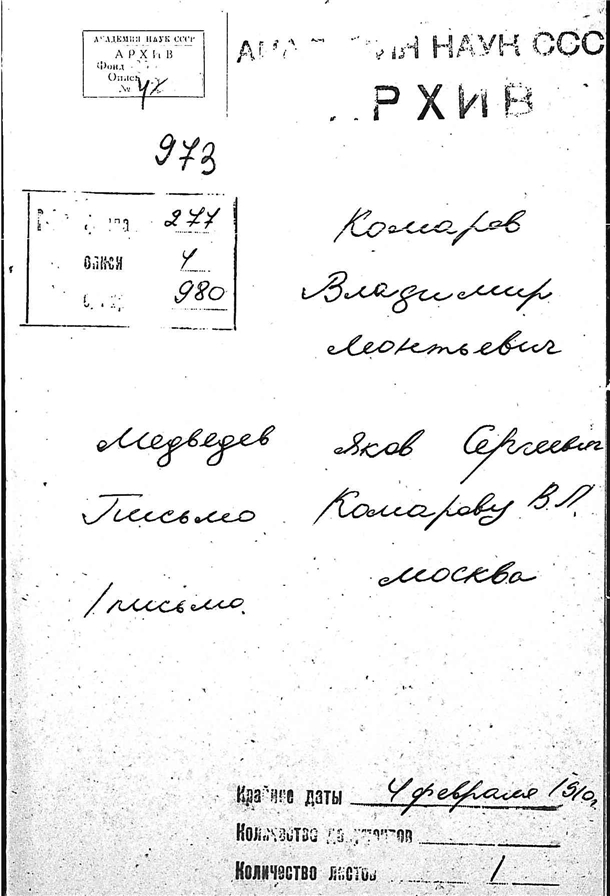 АКАДЕМИЯ НАУК СССР
АРХИВ
Фонд
Опись
№ 4х
НАУК ССС
РХИВ
973
277
описи 4
980
Комаров
Владимир
Леонтьевич
Медведев Яков Сергеевич
Письмо Комарову В.Л.
Москва
1 письмо.
Крайние даты 4 февраля 1910г.
Количество документов
Количество листов 1